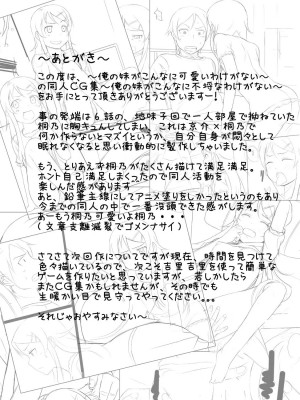 ～あとがき～
この度は、～俺の妹がこんなに可愛いわけがない～
の同人CG集～俺の妹がこんなに不埒なわけがない～
をお手にとって頂きありがとうございますー！
事の発端は6話の、地味子回で一人部屋で拗ねていた
桐乃に胸キュんしてしまい、これは京介×桐乃で
何か作らないとマズイというか、自分自身が悶々として
眠れなくなると思い衝動的に製作しちゃいました。
もう、とりあえず桐乃がたくさん描けて満足満足。
ホント自己満足しまくったので同人活動を
楽しんだ感があります
あと、鉛筆主線にしてアニメ塗りをしかたっというのもあり
今までの同人の中で一番没頭できた感がします。
あーもう桐乃可愛いよ桐乃・・・
(文章支離滅裂でゴメンナサイ)
さてさて次回作についてですが現在、時間を見つけて
色々描いているので、次こそ吉里吉里を使って簡単な
ゲームを作りたいと思っていますが、若しかしたら
またCG集かもしれませんが、その時でも
生暖かい目で見守ってやってください。。。
それじゃおやすみなさい～